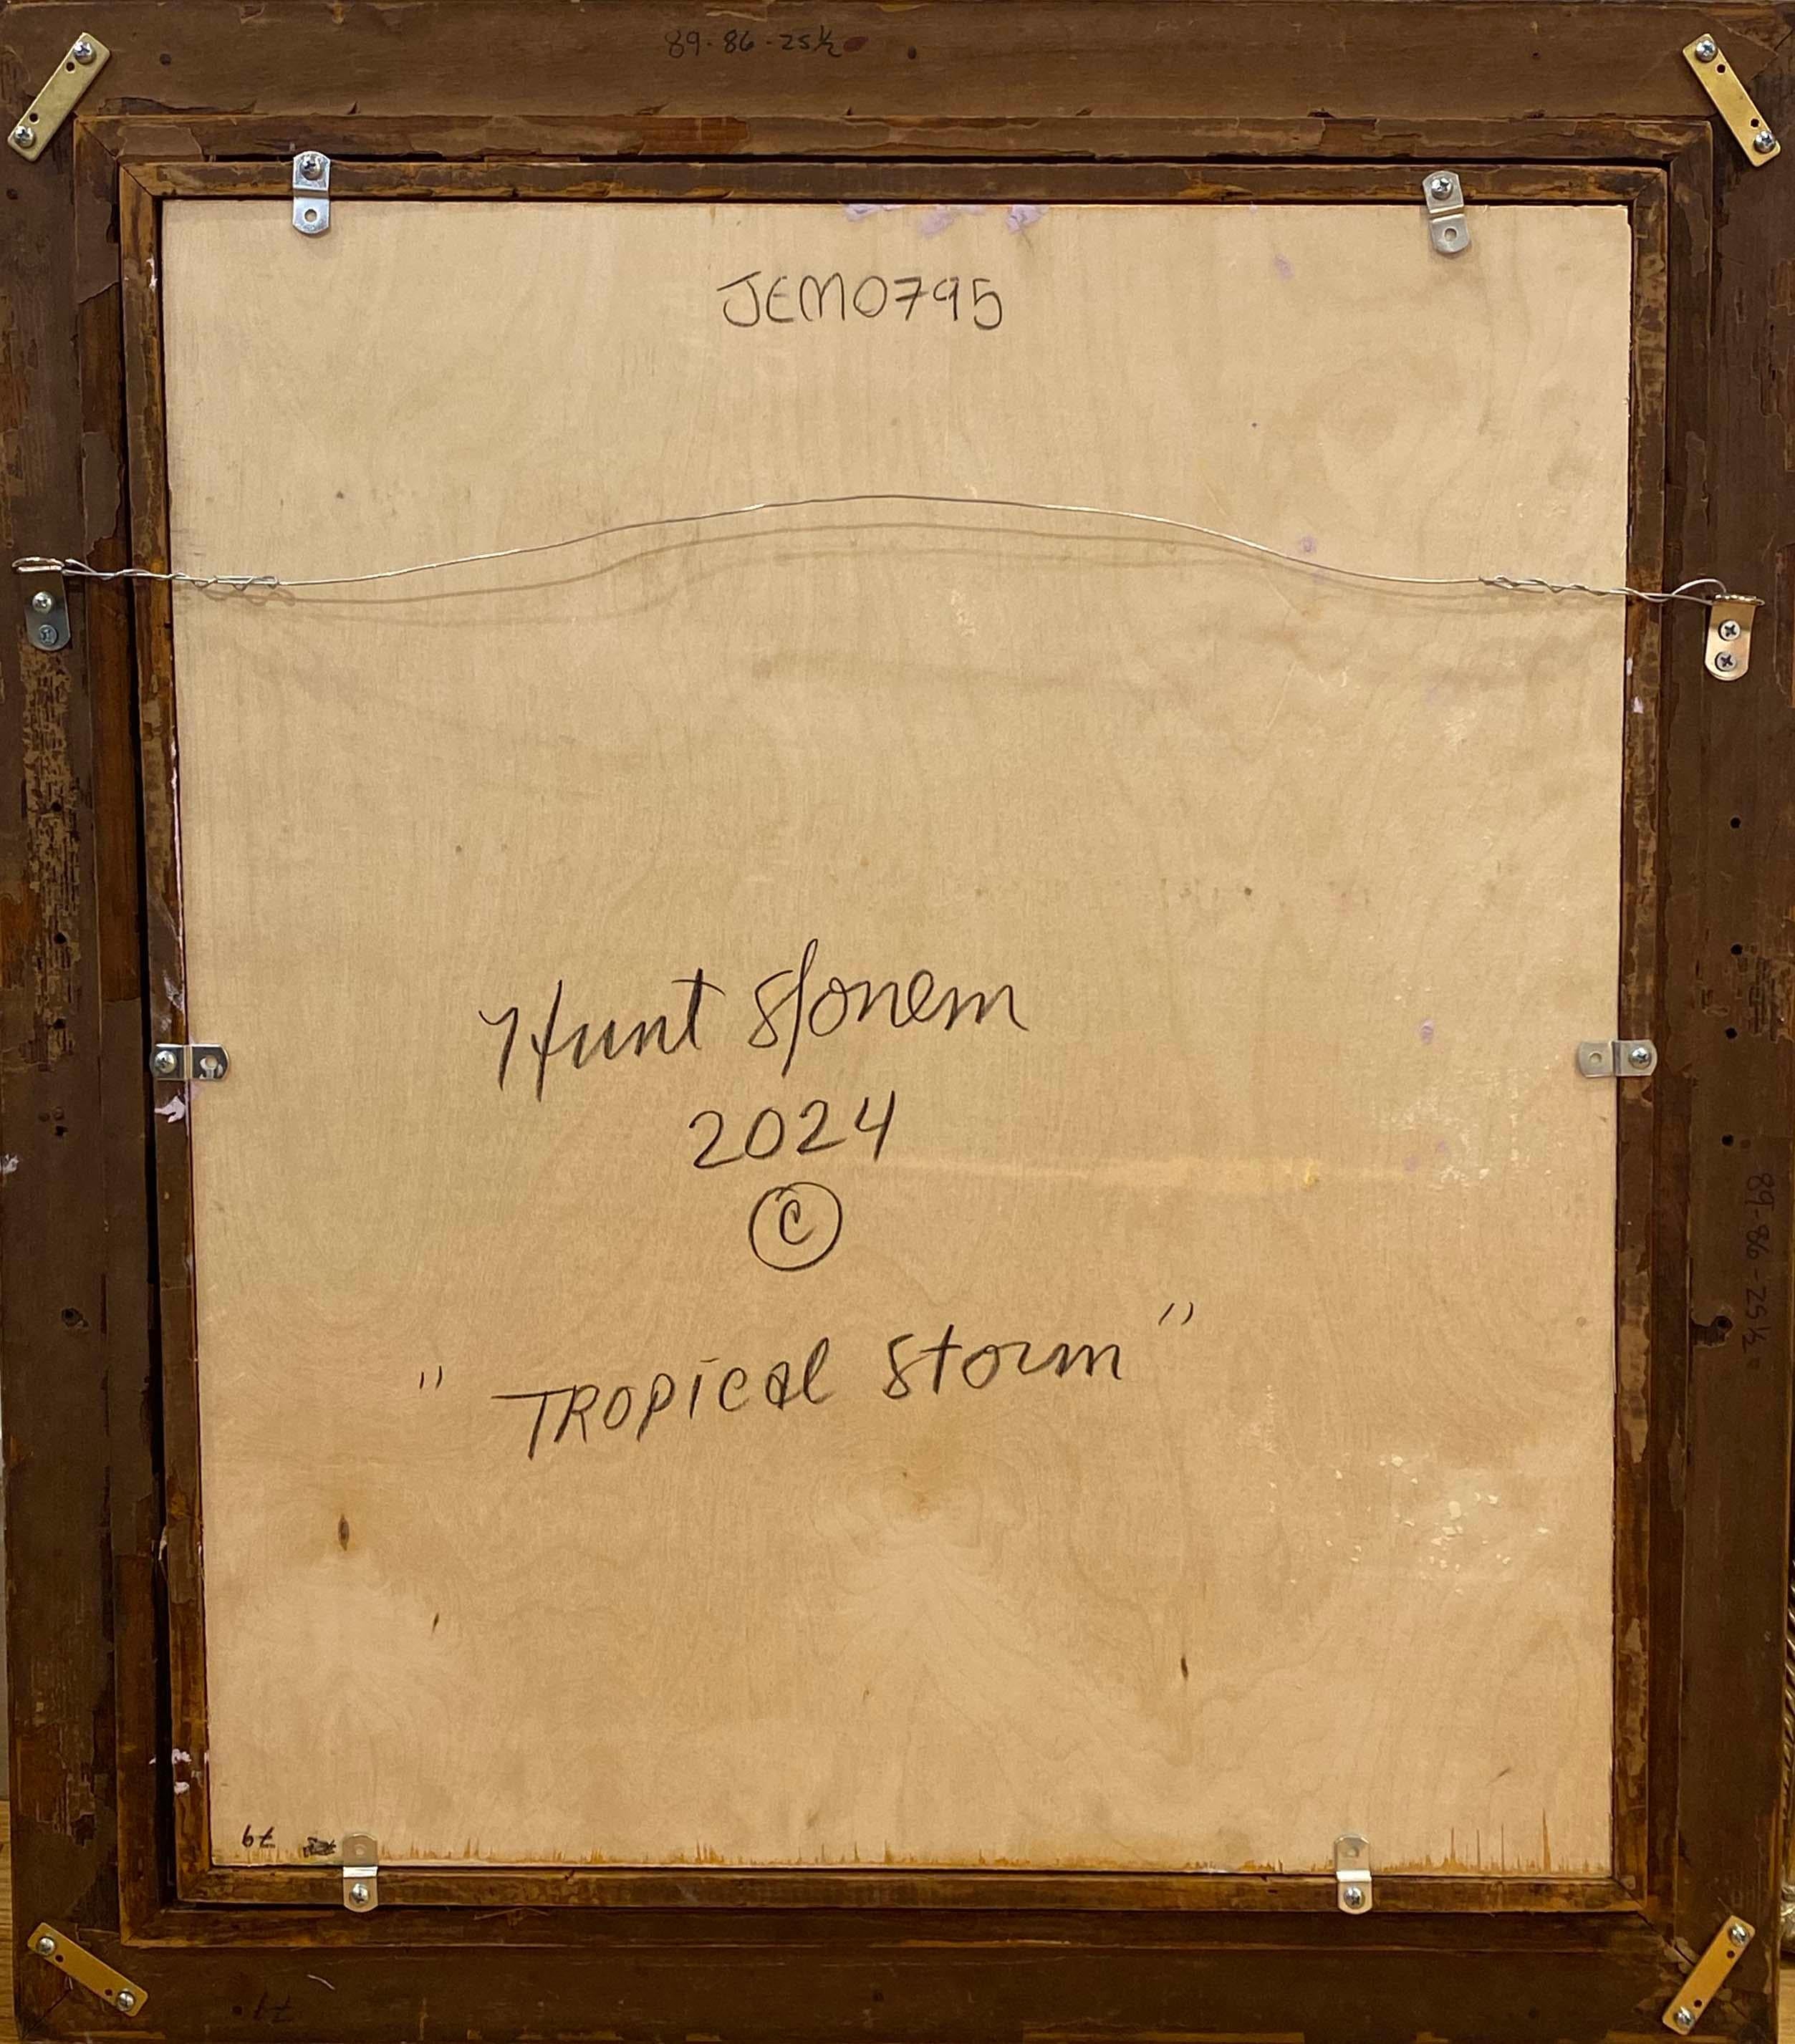 89-86-25½
JEM0795
Hunt Slonem
2024
©
"Tropical Storm"
89-86-25½"
79